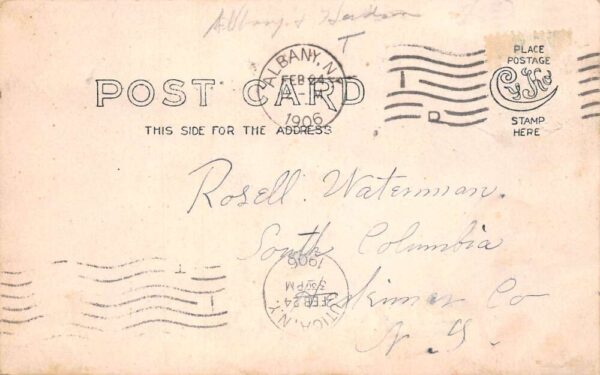 Albany & Hudson
T
ALBANY, N.Y.
FEB 24
1906
PLACE
POSTAGE
CyKo
STAMP
HERE
POST CARD
THIS SIDE FOR THE ADDRESS
Rosell Waterman.
South Columbia
Herkimer Co
N. Y.
UTICA, N.Y.
FEB 24
3 30 PM
1906